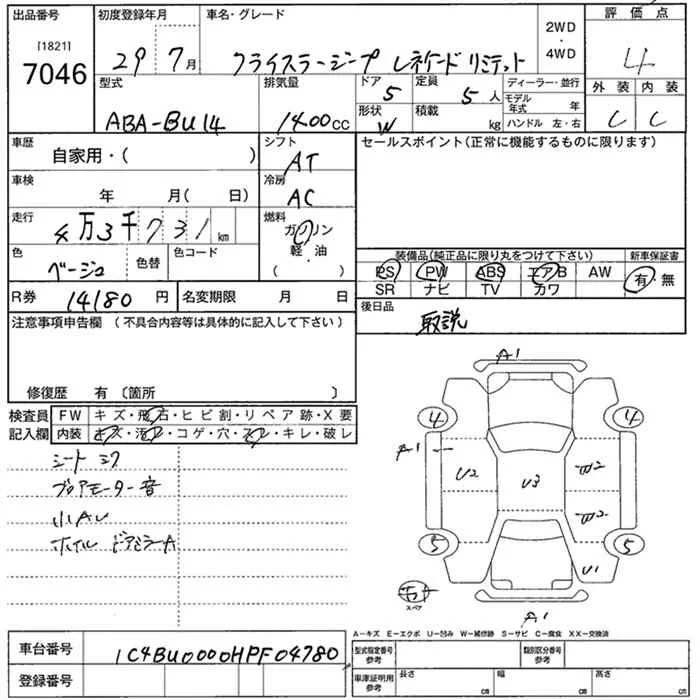 出品番号
[1821]
7046
初度登録年月
29 7月
車名・グレード
クライスラージープ レネゲード リミテット
2WD
・
4WD
評価点
4
外装 内装
C C
型式
ABA-BU14
排気量
1400cc
ドア
5
形状
W
定員
5人
積載
kg
ディーラー・並行
モデル年式 年
ハンドル 左・右
車歴
自家用・( )
シフト
AT
セールスポイント(正常に機能するものに限ります)
車検
年 月( 日)
冷房
AC
走行
4万3千731km
燃料
ガソリン
軽・油
( ・ )
色
ベージュ
色替
色コード
装備品(純正品に限り丸をつけて下さい)
新車保証書
PS PW ABS エアB AW
SR ナビ TV カワ
有・無
R券
14180円
名変期限 月 日
後日品
取説
注意事項申告欄(不具合内容等は具体的に記入して下さい)
修復歴 有〔箇所 〕
検査員
記入欄
FW キズ・飛石・ヒビ割・リペア跡・X要
内装 キズ・汚レ・コゲ・穴・スレ・キレ・破レ
シート シワ
ブロアモーター音
小AU
ホイル ドアミラーA
A1
4 4
A1
U2 U3 W2
W2
5 5
U1
スペア
A1
A-キズ E-エクボ U-凹み W-補修跡 S-サビ C-腐食 XX-交換済
車台番号
1C4BU0000HPF04780
登録番号
型式指定番号
参考
類別区分番号
参考
車庫証明用
参考
長さ cm
幅 cm
高さ cm